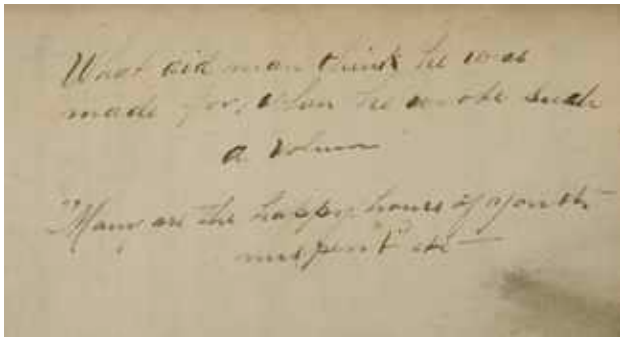 What did man think he was
made for, when he wrote such
a volume
"Many are the happy hours of youth
misspent" etc —